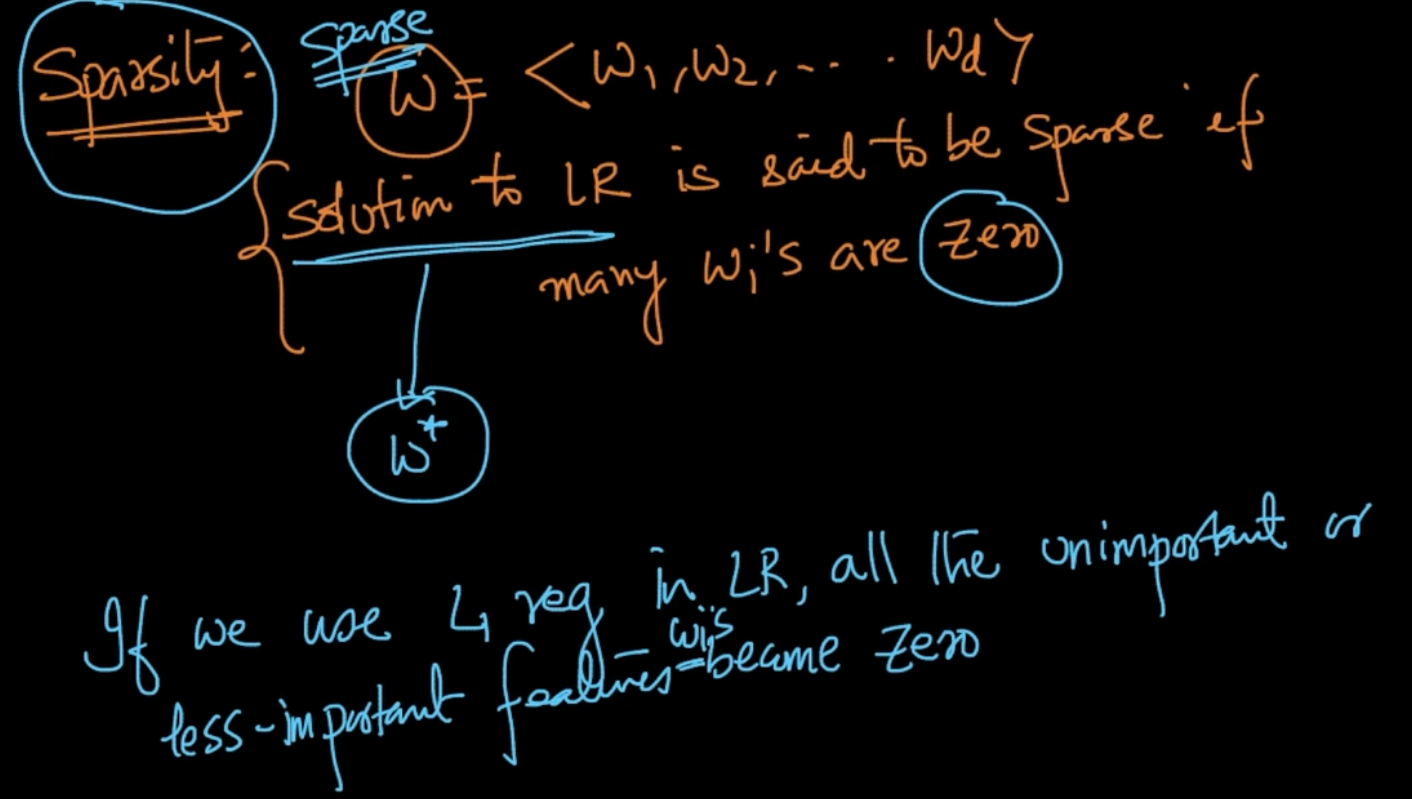 Sparsity: Sparse
W = < W₁, W₂, ... . Wd >
solution to LR is said to be Sparse if
many Wi's are Zero
W*
If we use L₁ reg in LR, all the unimportant or
less-important features - wi's became Zero